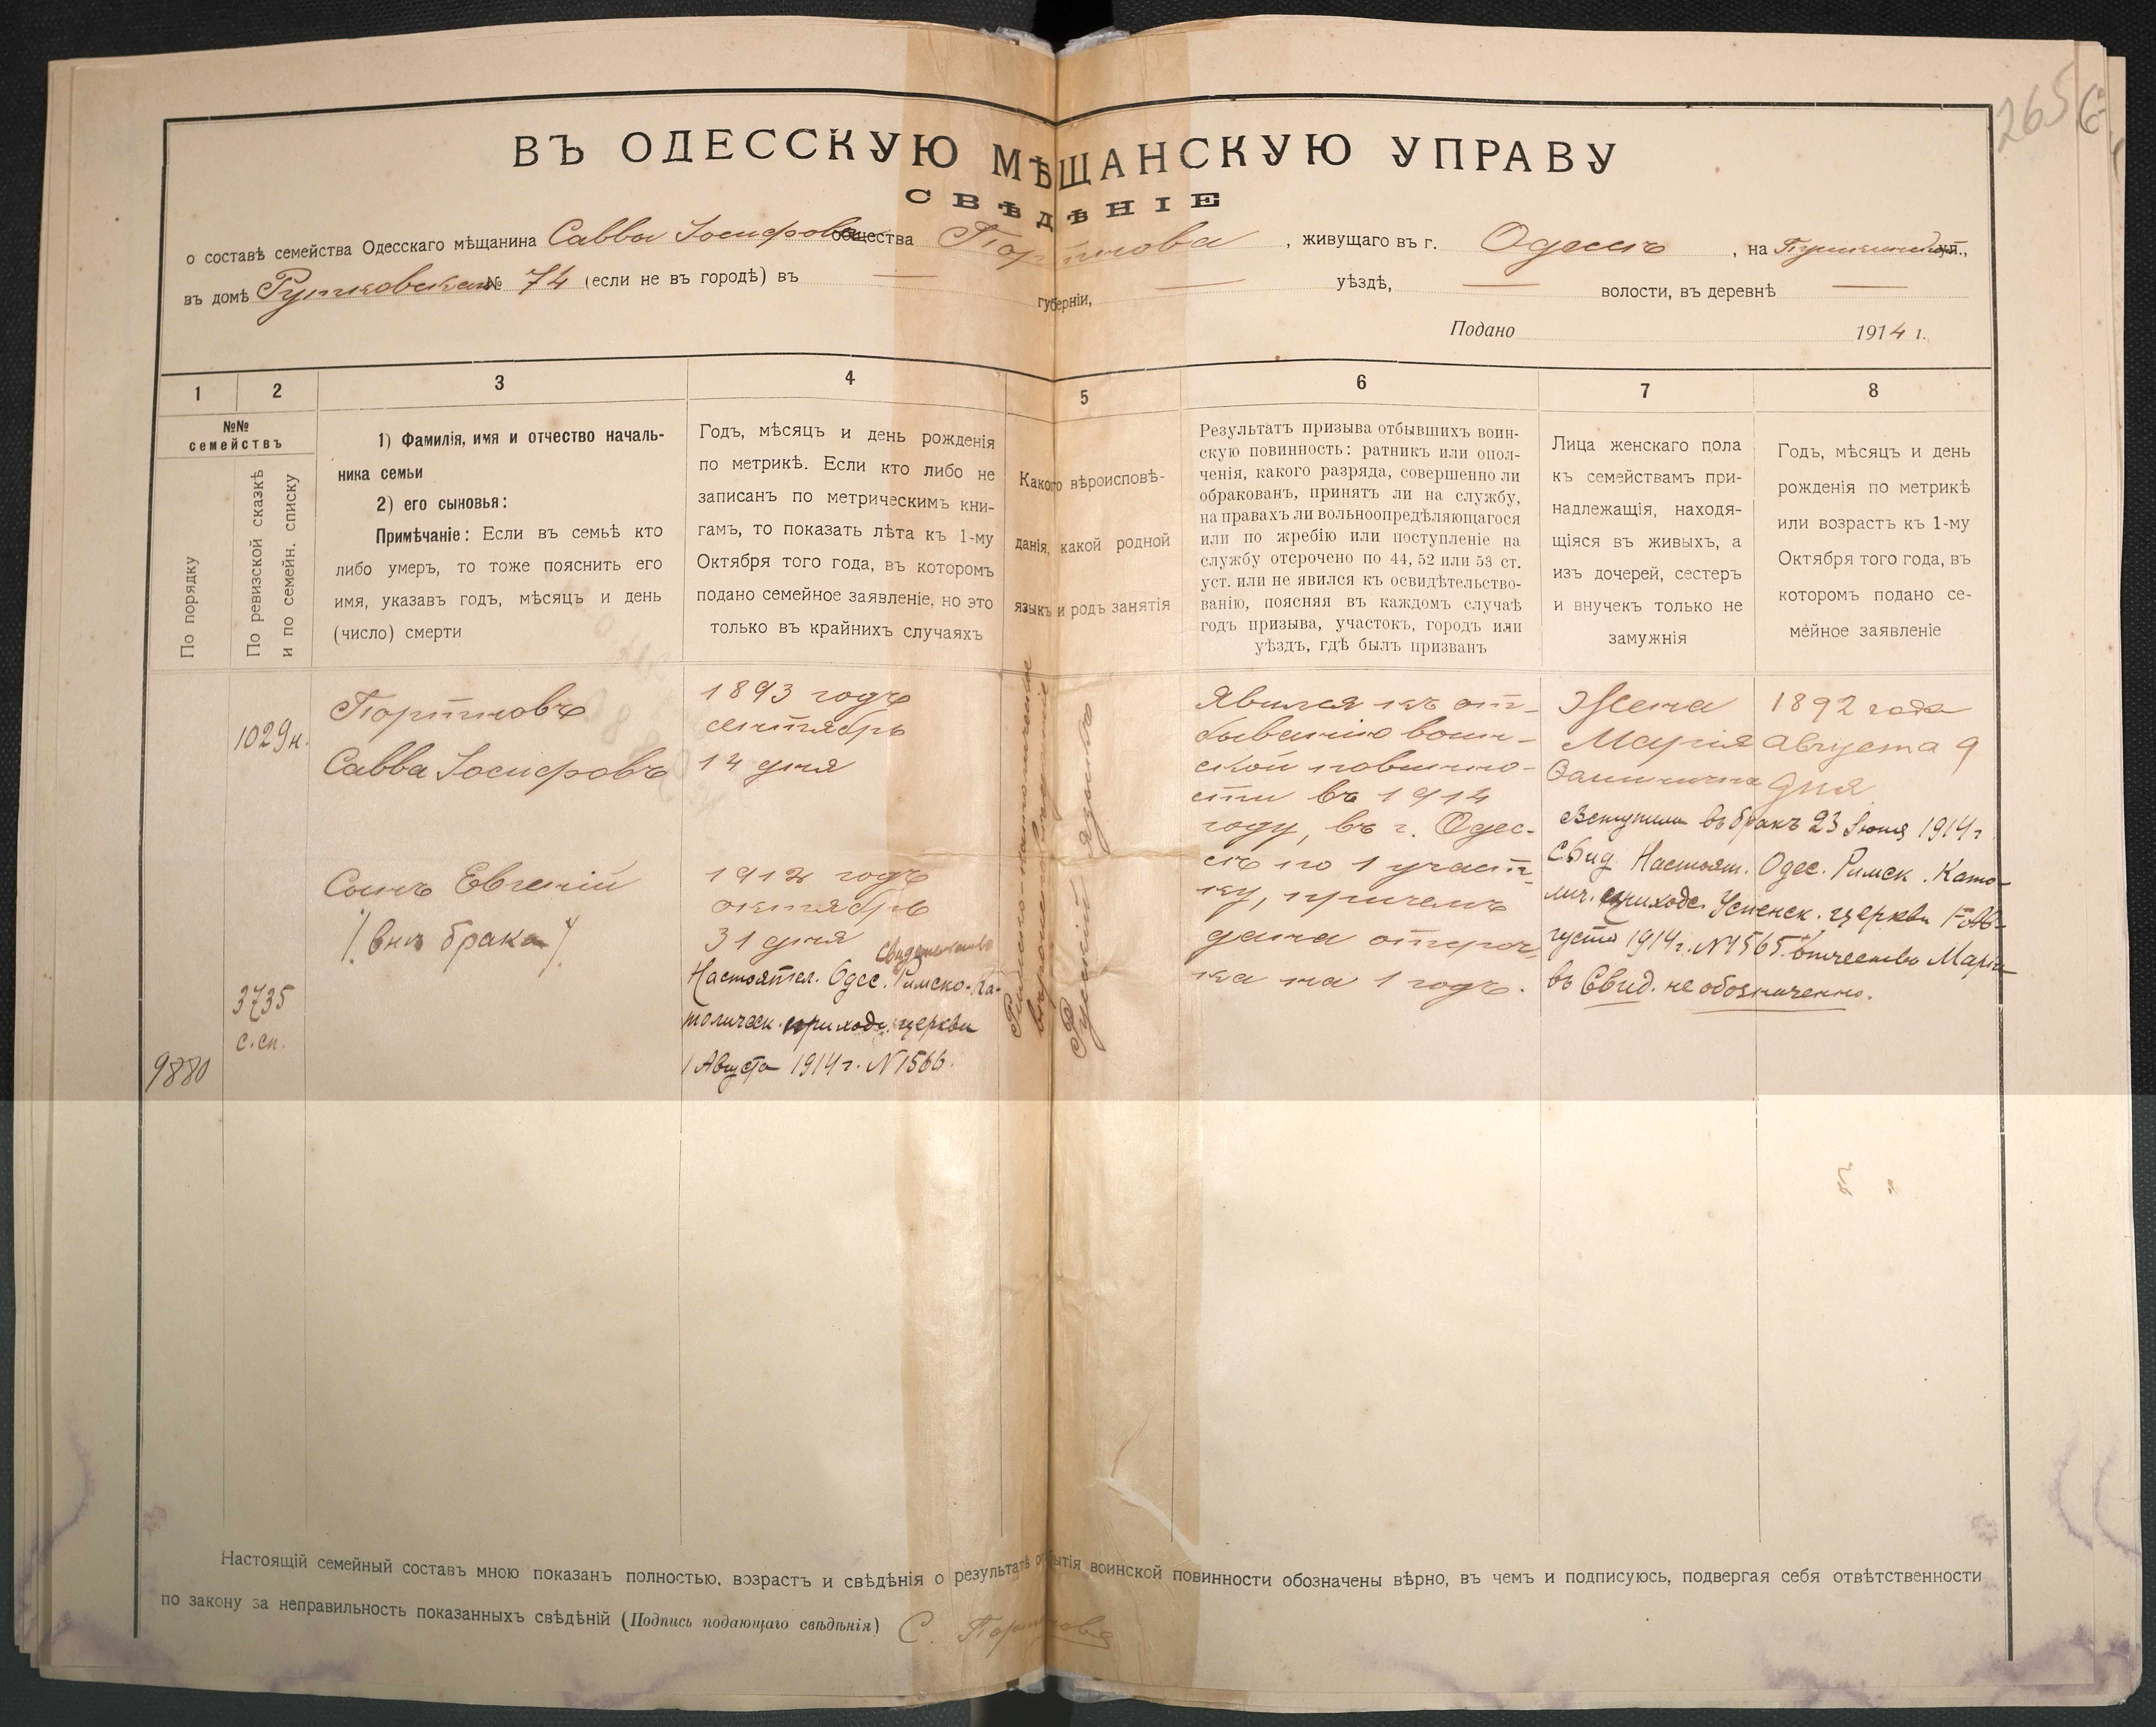 265
ВЪ ОДЕССКУЮ МѢЩАНСКУЮ УПРАВУ
СВѢДѢНІЕ
о составѣ семейства Одесскаго мѣщанина Савва Іосифова общества Портнова, живущаго въ г. Одессѣ, на ул.,
въ домѣ № 74 (если не въ городѣ) въ — губерніи, — уѣздѣ, — волости, въ деревнѣ —
Подано 1914 г.
1 2 3 4 5 6 7 8
№№
семействъ
По порядку
По ревизской сказкѣ
и по семейн. списку
1) Фамилія, имя и отчество началь-
ника семьи
2) его сыновья:
Примѣчаніе: Если въ семьѣ кто
либо умеръ, то тоже пояснить его
имя, указавъ годъ, мѣсяцъ и день
(число) смерти
Годъ, мѣсяцъ и день рожденія
по метрикѣ. Если кто либо не
записанъ по метрическимъ кни-
гамъ, то показать лѣта къ 1-му
Октября того года, въ которомъ
подано семейное заявленіе, но это
только въ крайнихъ случаяхъ
Какого вѣроисповѣ-
данія, какой родной
языкъ и родъ занятія
Результатъ призыва отбывшихъ воин-
скую повинность: ратникъ или опол-
ченія, какого разряда, совершенно ли
обракованъ, принятъ ли на службу,
на правахъ ли вольноопредѣляющагося
или по жребію или поступленіе на
службу отсрочено по 44, 52 или 53 ст.
уст. или не явился къ освидѣтельство-
ванію, поясняя въ каждомъ случаѣ
годъ призыва, участокъ, городъ или
уѣздъ, гдѣ былъ призванъ
Лица женскаго пола
къ семействамъ при-
надлежащія, находя-
щіяся въ живыхъ, а
изъ дочерей, сестеръ
и внучекъ только не
замужнія
Годъ, мѣсяцъ и день
рожденія по метрикѣ
или возрастъ къ 1-му
Октября того года, въ
которомъ подано се-
мейное заявленіе
1029 н.
3735
с.сп.
9880
Портновъ
Савва Іосифовъ
Сынъ Евгеній
/внѣ брака/
1893 годъ
сентябрь
14 дня
1912 годъ
октябрь
31 дня свидетельство
Настоятел. Одес. Римско-Ка-
толическ. приходс. церкви
1 Августа 1914 г. N 1566.
Римско-католическое
вѣроисповѣданіе
Русскій языкъ
Явился къ от-
быванію воин-
ской повинно-
сти въ 1914
году, въ г. Одес-
сѣ по 1 участ-
ку, причемъ
дана отсроч-
ка на 1 годъ.
Жена
Марія
1892 года
августа 9
дня
Вступили въ бракъ 23 Іюня 1914 г
Свид. Настоят. Одес. Римск. Като-
лич. приходс. Успенск. церкви 1 Ав-
густа 1914 г. N 1565. Отчество Маріи
въ Свид. не обозначенно.
Настоящій семейный составъ мною показанъ полностью, возрастъ и свѣдѣнія о результатѣ отбытія воинской повинности обозначены вѣрно, въ чемъ и подписуюсь, подвергая себя отвѣтственности
по закону за неправильность показанныхъ свѣдѣній (Подпись подающаго свѣдѣнія) С. Портновъ